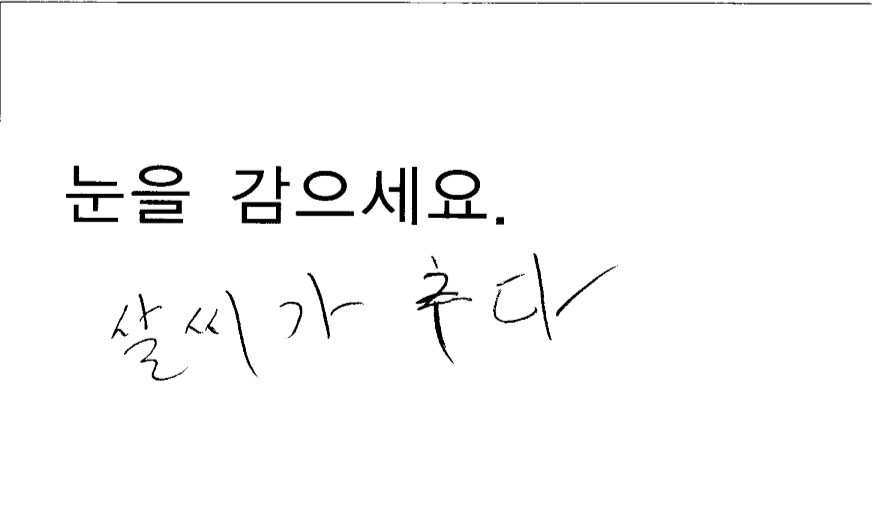 눈을 감으세요.
살씨가 추다